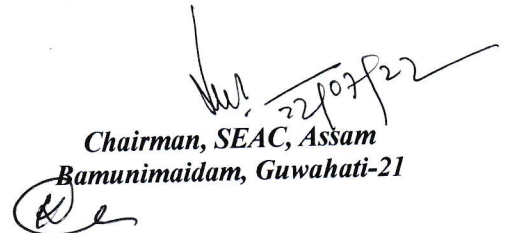 22/07/22
Chairman, SEAC, Assam
Bamunimaidam, Guwahati-21